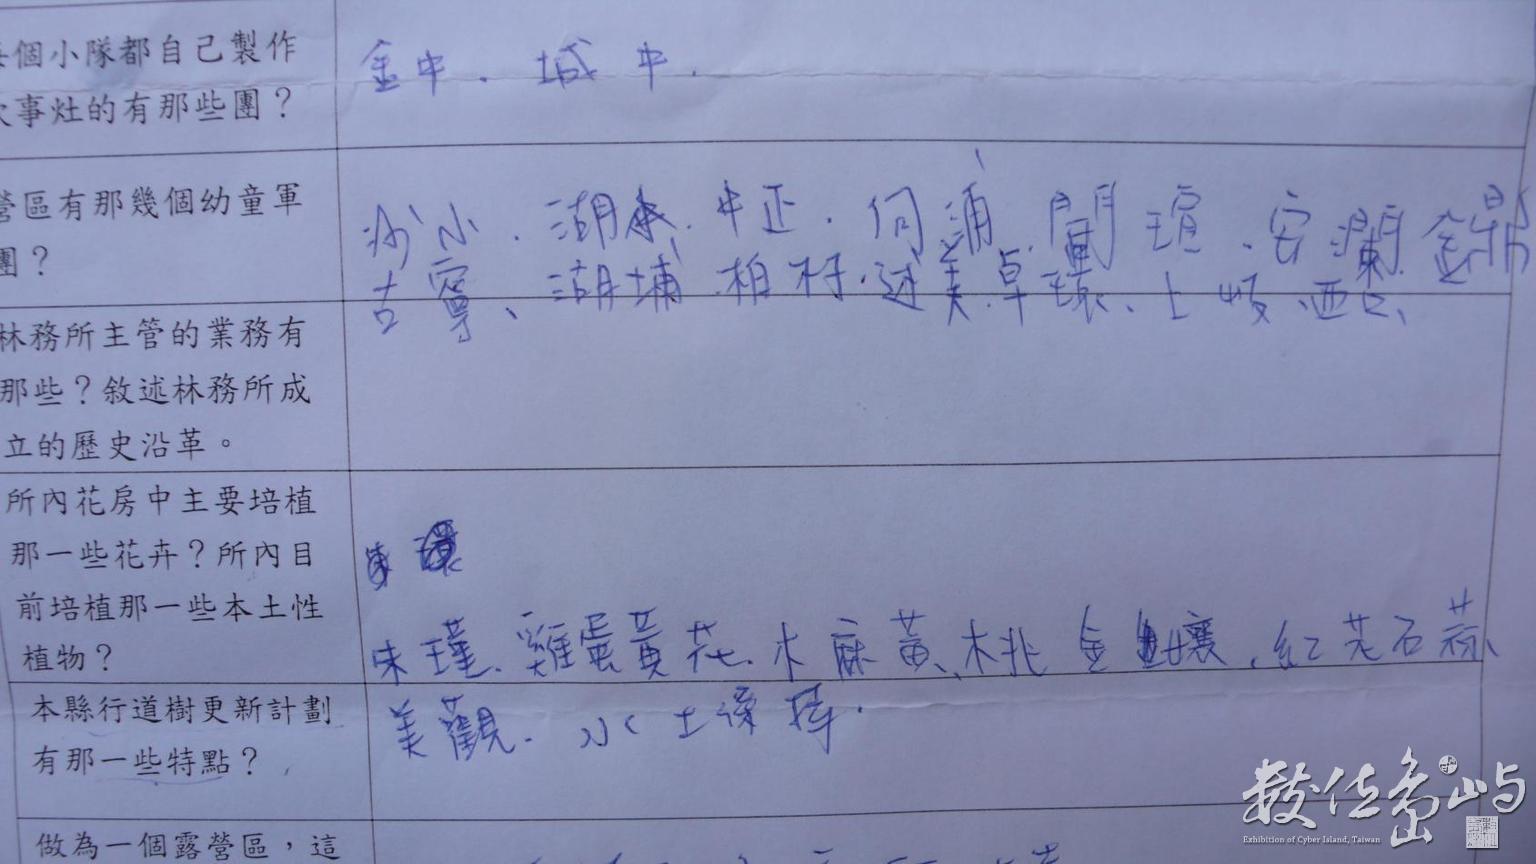 每個小隊都自己製作
炊事灶的有那些團？
金中、城中、
營區有那幾個幼童軍
團？
沙小、湖小、中正、何浦、開瑄、安瀾、金鼎
古寧、湖埔、柏村、述美、卓環、上岐、西口、
林務所主管的業務有
那些？敘述林務所成
立的歷史沿革。
所內花房中主要培植
那一些花卉？所內目
前培植那一些本土性
植物？
朱瑾、雞蛋黃花、木麻黃、桃金孃、紅花石蒜、
本縣行道樹更新計劃
有那一些特點？
美觀、水土保持。
做為一個露營區，這
數位島嶼
Exhibition of Cyber Island, Taiwan